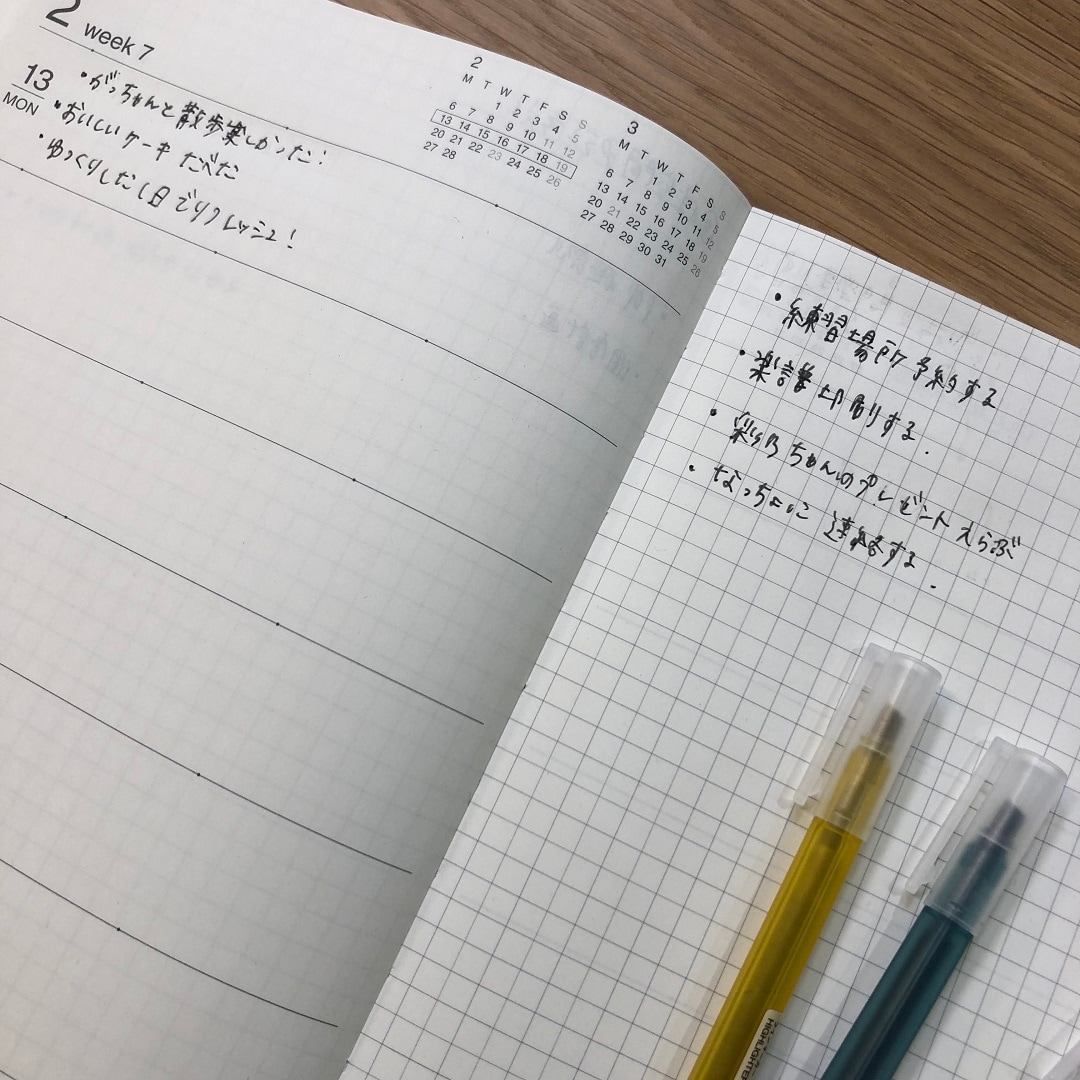 2 week 7
13
MON
・がっちゃんと散歩楽しかった!
・おいしいケーキ たべた
・ゆっくりした1日でリフレッシュ!
2
M T W T F S S
1 2 3 4 5
6 7 8 9 10 11 12
13 14 15 16 17 18 19
20 21 22 23 24 25 26
27 28
3
M T W T F S S
1 2 3 4 5
6 7 8 9 10 11 12
13 14 15 16 17 18 19
20 21 22 23 24 25 26
27 28 29 30 31
・練習場所予約する
・楽譜印刷する.
・彩乃ちゃんのプレゼントえらぶ
・なっちょに連絡する.
HIGHLIGHTER